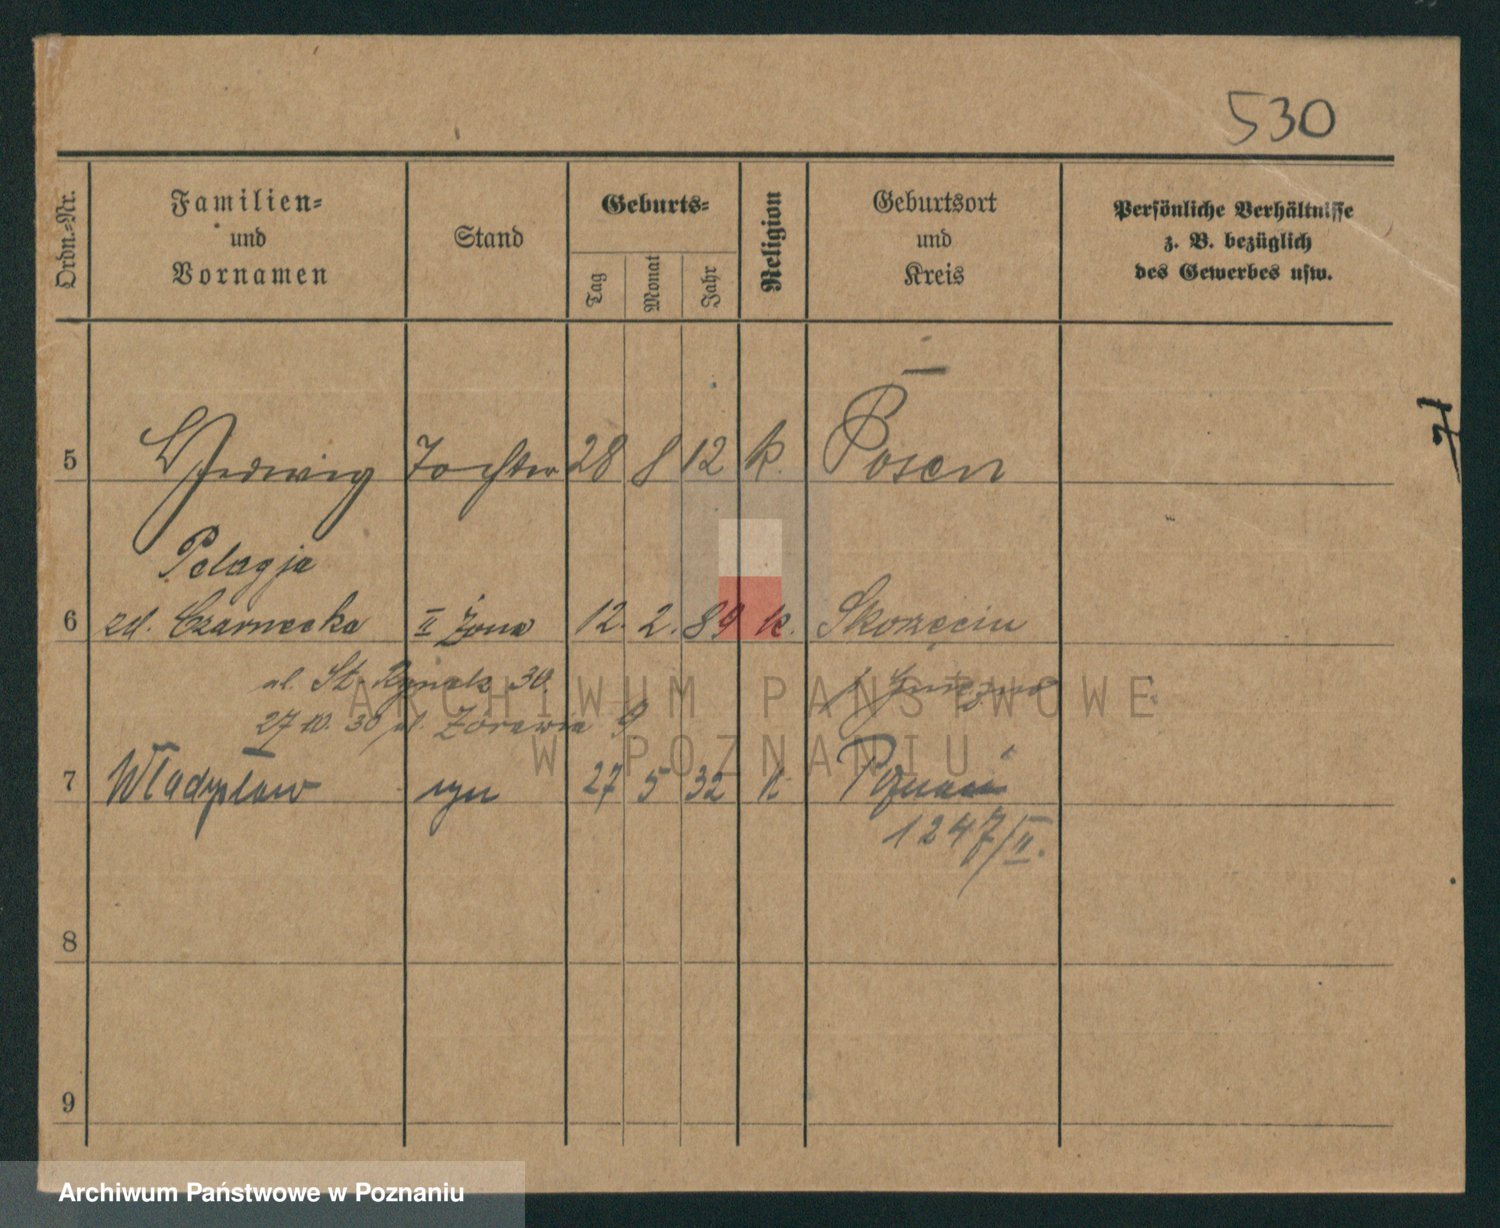 530
Ordn.-Nr.
Familien-
und
Vornamen
Stand
Geburts-
Tag
Monat
Jahr
Religion
Geburtsort
und
Kreis
Persönliche Verhältnisse
z. B. bezüglich
des Gewerbes usw.
5 Hedwig Tochter 28 8 12 k. Posen
Pelagja
6 zd. Czarnecka II żona 12. 2. 89 k. Skorzęcin
ul. St. Rynek 30.
27 10. 30 ul. Żórawia 9
7 Władysław syn 27 5 32 k Poznań
1247/II.
8
9
71
ARCHIWUM PAŃSTWOWE
W POZNANIU
Archiwum Państwowe w Poznaniu